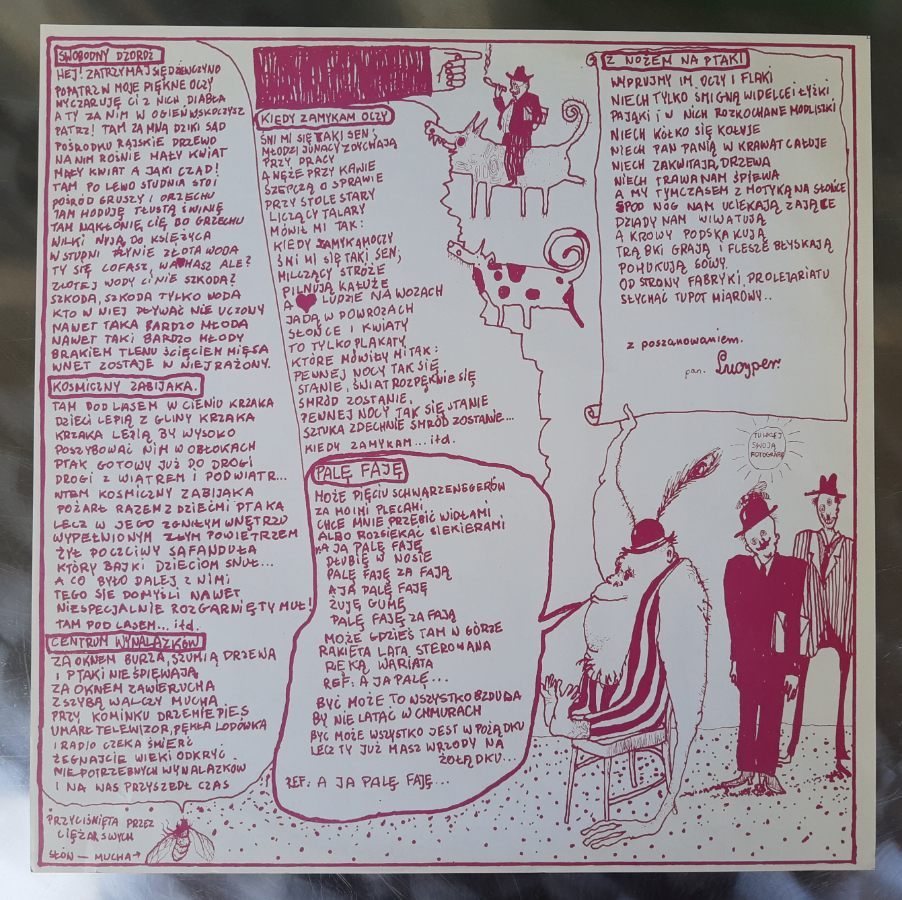 SWOBODNY DŻORDŻ
HEJ! ZATRZYMAJ SIĘ DZIEWCZYNO
POPATRZ W MOJE PIĘKNE OCZY
WYCZARUJĘ CI Z NICH DIABŁA
A TY ZA NIM W OGIEŃ WSKOCZYSZ
PATRZ! TAM ZA MNĄ DZIKI SAD
POŚRODKU RAJSKIE DRZEWO
NA NIM ROŚNIE MAŁY KWIAT
MAŁY KWIAT A JAKI CZAD!
TAM PO LEWO STUDNIA STOI
POŚRÓD GRUSZY I ORZECHU
TAM HODUJĘ TŁUSTĄ ŚWINIĘ
TAM NAKŁONIĘ CIĘ DO GRZECHU
WILKI WYJĄ DO KSIĘŻYCA
W STUDNI PŁYNIE ZŁOTA WODA
TY SIĘ COFASZ, WAHASZ ALE?
ZŁOTEJ WODY CI NIE SZKODA?
SZKODA, SZKODA TYLKO WODA
KTO W NIEJ PŁYWAĆ NIE UCZONY
NAWET TAKA BARDZO MŁODA
NAWET TAKI BARDZO MŁODY
BRAKIEM TLENU ŚCIĘCIEM MIĘSA
WNET ZOSTAJE W NIEJ RAŻONY.
KOSMICZNY ZABIJAKA.
TAM POD LASEM W CIENIU KRZAKA
DZIECI LEPIĄ Z GLINY KRZAKA
KRZAKA LEPIĄ BY WYSOKO
POSZYBOWAĆ NIM W OBŁOKACH
PTAK GOTOWY JUŻ DO DROGI
DROGI Z WIATREM I POD WIATR...
WTEM KOSMICZNY ZABIJAKA
POŻARŁ RAZEM Z DZIEĆMI PTAKA
LECZ W JEGO ZGNIŁYM WNĘTRZU
WYPEŁNIONYM ZŁYM POWIETRZEM
ŻYŁ POCZCIWY SAFANDUŁA
KTÓRY BAJKI DZIECIOM SNUŁ...
A CO BYŁO DALEJ Z NIMI
TEGO SIĘ DOMYŚLI NAWET
NIESPECJALNIE ROZGARNIĘTY MUŁ!
TAM POD LASEM... itd.
CENTRUM WYNALAZKÓW
ZA OKNEM BURZA, SZUMIĄ DRZEWA
I PTAKI NIE ŚPIEWAJĄ
ZA OKNEM ZAWIERUCHA
Z SZYBĄ WALCZY MUCHA
PRZY KOMINKU DRZEMIE PIES
UMARŁ TELEWIZOR, PĘKŁA LODÓWKA
I RADIO CZEKA ŚMIERĆ
ŻEGNAJCIE WIEKI ODKRYĆ
NIEPOTRZEBNYCH WYNALAZKÓW
I NA NAS PRZYSZEDŁ CZAS
PRZYCIŚNIĘTA PRZEZ
CIĘŻAR SWYCH
SŁÓW — MUCHA →
KIEDY ZAMYKAM OCZY
ŚNI MI SIĘ TAKI SEN;
MŁODZI JUNACY ZDYCHAJĄ
PRZY PRACY
A WĘŻE PRZY KAWIE
SZEPCZĄ O SPRAWIE
PRZY STOLE STARY
LICZĄCY TALARY
MÓWIŁ MI TAK:
KIEDY ZAMYKAM OCZY
ŚNI MI SIĘ TAKI SEN;
MILCZĄCY STRÓŻE
PILNUJĄ KAŁUŻE
A ♥ LUDZIE NA WOZACH
JADĄ W POWROZACH
SŁOŃCE I KWIATY
TO TYLKO PLAKATY,
KTÓRE MÓWIŁY MI TAK:
PEWNEJ NOCY TAK SIĘ
STANIE, ŚWIAT ROZPĘKNIE SIĘ
SMRÓD ZOSTANIE,
PEWNEJ NOCY TAK SIĘ STANIE
SZTUKA ZDECHNIE SMRÓD ZOSTANIE...
KIEDY ZAMYKAM... itd.
PALĘ FAJĘ
MOŻE PIĘCIU SCHWARZENEGERÓW
ZA MOIMI PLECAMI
CHCE MNIE PRZEBIĆ WIDŁAMI
ALBO ROZSIEKAĆ SIEKIERAMI
A JA PALĘ FAJĘ
DŁUBIĘ W NOSIE
PALĘ FAJĘ ZA FAJĄ
A JA PALĘ FAJĘ
ŻUJĘ GUMĘ
PALĘ FAJĘ ZA FAJĄ
MOŻE GDZIEŚ TAM W GÓRZE
RAKIETA LATA STEROWANA
RĘKĄ WARIATA
REF: A JA PALĘ...
BYĆ MOŻE TO WSZYSTKO BZDURA
BY NIE LATAĆ W CHMURACH
BYĆ MOŻE WSZYSTKO JEST W POŻĄDKU
LECZ TY JUŻ MASZ WRZODY NA
ŻOŁĄDKU...
REF: A JA PALĘ FAJĘ...
Z NOŻEM NA PTAKI
WYPRUJMY IM OCZY I FLAKI
NIECH TYLKO ŚMIGNĄ WIDELCE I ŁYŻKI
PAJĄKI I W NICH ROZKOCHANE MODLISZKI
NIECH KÓŁKO SIĘ KOŁUJE
NIECH PAN PANIĄ W KRAWAT CAŁUJE
NIECH ZAKWITAJĄ DRZEWA
NIECH TRAWA NAM ŚPIEWA
A MY TYMCZASEM Z MOTYKĄ NA SŁOŃCE
SPOD NÓG NAM UCIEKAJĄ ZAJĄCE
DZIADY NAM WIWATUJĄ
A KROWY PODSKAKUJĄ
TRĄBKI GRAJĄ I FLESZE BŁYSKAJĄ
POHUKUJĄ SOWY.
OD STRONY FABRYKI, PROLETARIATU
SŁYCHAĆ TUPOT MIAROWY..
z poszanowaniem.
pan. Lucyper.
TU WKLEJ
SWOJĄ
FOTOGRAFIĘ